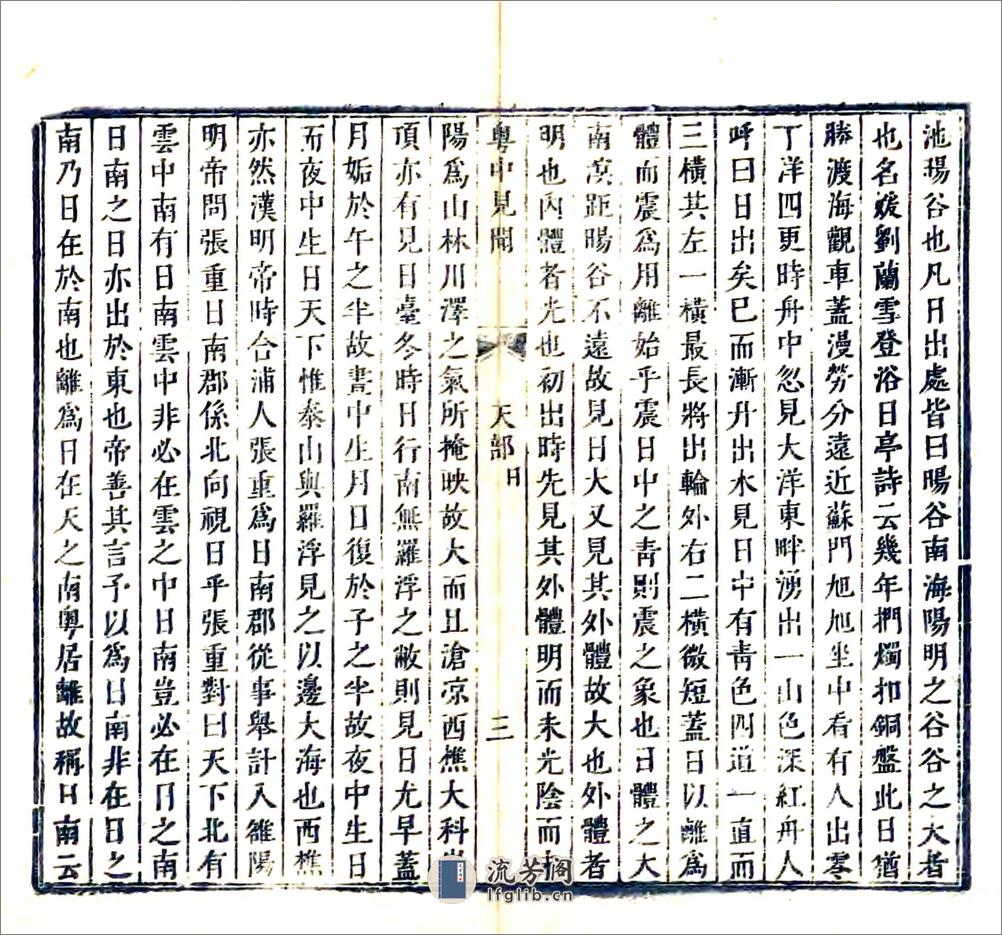 池暘谷也凡日出處皆曰暘谷南海陽明之谷谷之大者
也名媛劉蘭雪登浴日亭詩云幾年捫燭扣銅盤此日猶
勝渡海觀車蓋漫勞分遠近蘇門旭旭坐中看有人出零
丁洋四更時舟中忽見大洋東畔湧出一山色深紅舟人
呼曰日出矣已而漸升出水見日中有靑色四道一直而
三橫其左一橫最長將出輪外右二橫微短蓋日以離爲
體而震爲用離始乎震日中之靑則震之象也日體之大
南溟距暘谷不遠故見日大又見其外體故大也外體者
明也內體者光也初出時先見其外體明而未光陰而
粵中見聞 天部日 三
陽爲山林川澤之氣所掩映故大而且滄凉西樵大科
頂亦有見日臺冬時日行南無羅浮之敝則見日尤早蓋
月姤於午之半故晝中生月日復於子之半故夜中生日
而夜中生日天下惟泰山與羅浮見之以邊大海也西樵
亦然漢明帝時合浦人張重爲日南郡從事舉計入雒陽
明帝問張重日南郡係北向視日乎張重對曰天下北有
雲中南有日南雲中非必在雲之中日南豈必在日之南
日南之日亦出於東也帝善其言予以爲日南非在日之
南乃日在於南也離爲日在天之南粵居離故稱日南云
流芳阁
lfglib.cn